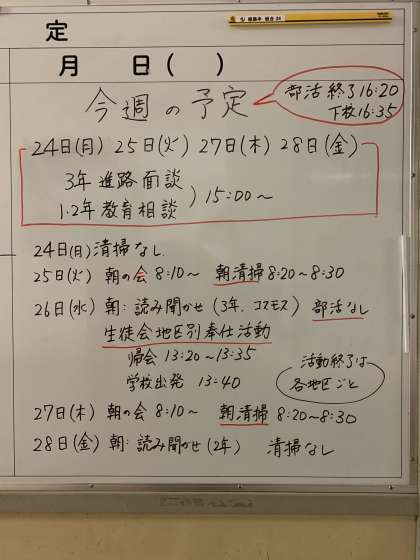 定
月 日( )
今週の予定
部活終了16:20
下校16:35
24日(月) 25日(火) 27日(木) 28日(金)
3年進路面談
1・2年教育相談
) 15:00～
24日(月)清掃なし.
25日(火) 朝の会 8:10～ 朝清掃8:20～8:30
26日(水) 朝:読み聞かせ(3年, コスモス) 部活なし
生徒会地区別奉仕活動
帰会 13:20～13:35
学校出発 13:40
活動終了は
各地区ごと
27日(木) 朝の会 8:10～ 朝清掃 8:20～8:30
28日(金) 朝:読み聞かせ(2年) 清掃なし